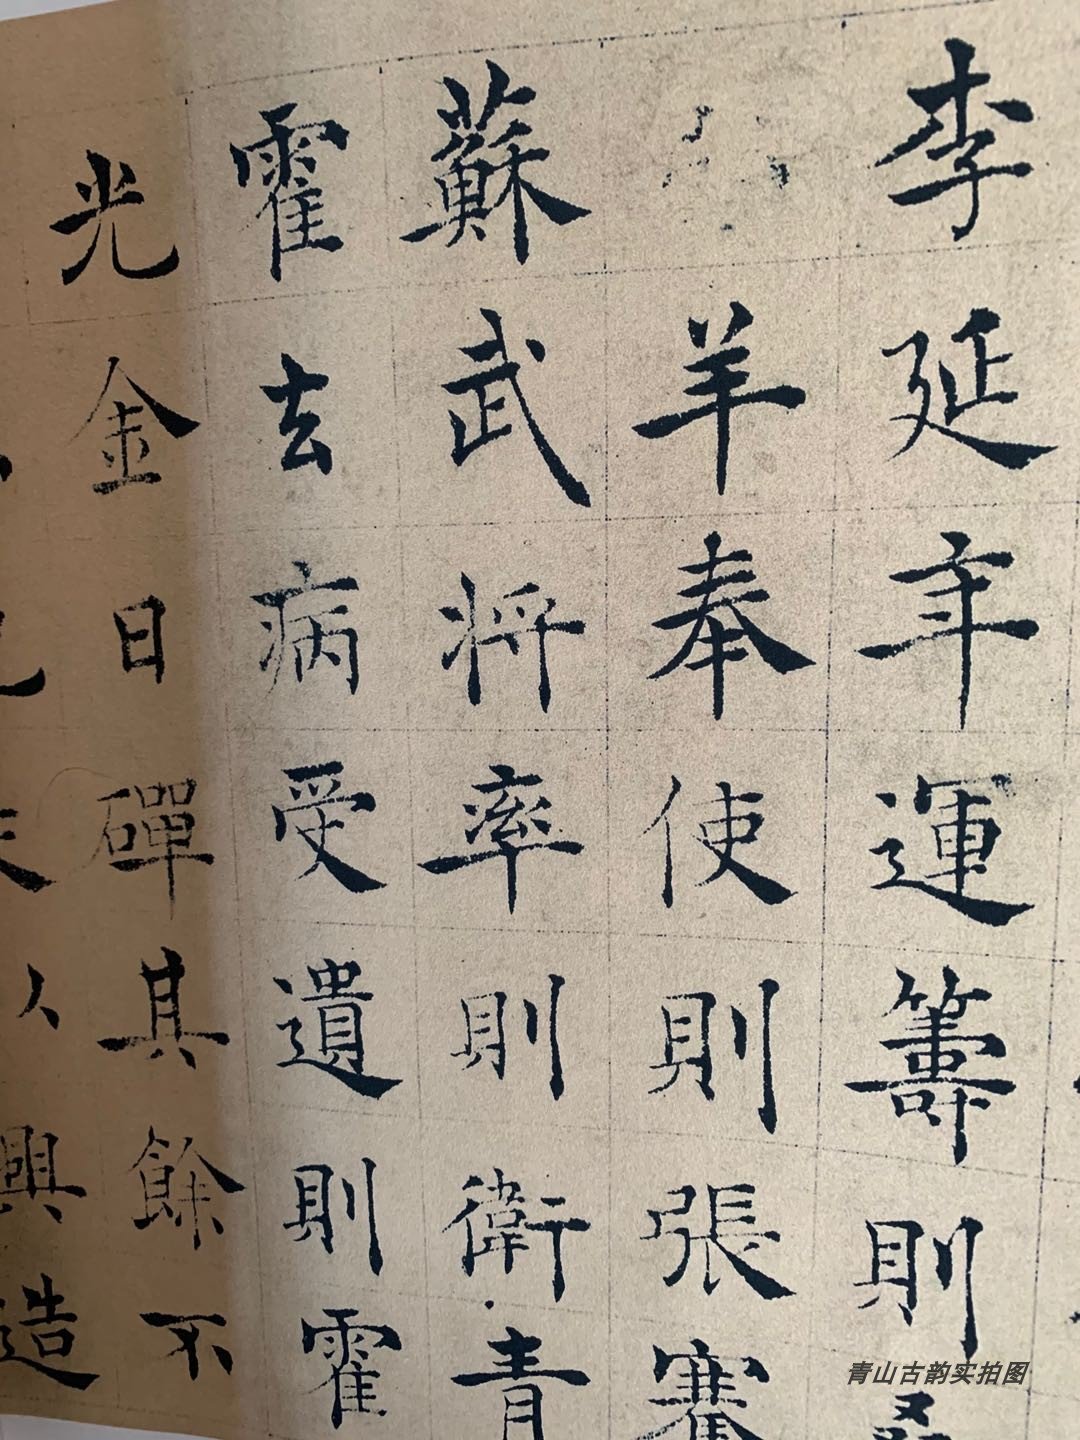 李延年運籌則桑
羊奉使則張騫
蘇武將率則衛青
霍去病受遺則霍
光金日磾其餘不
興造
青山古韵实拍图